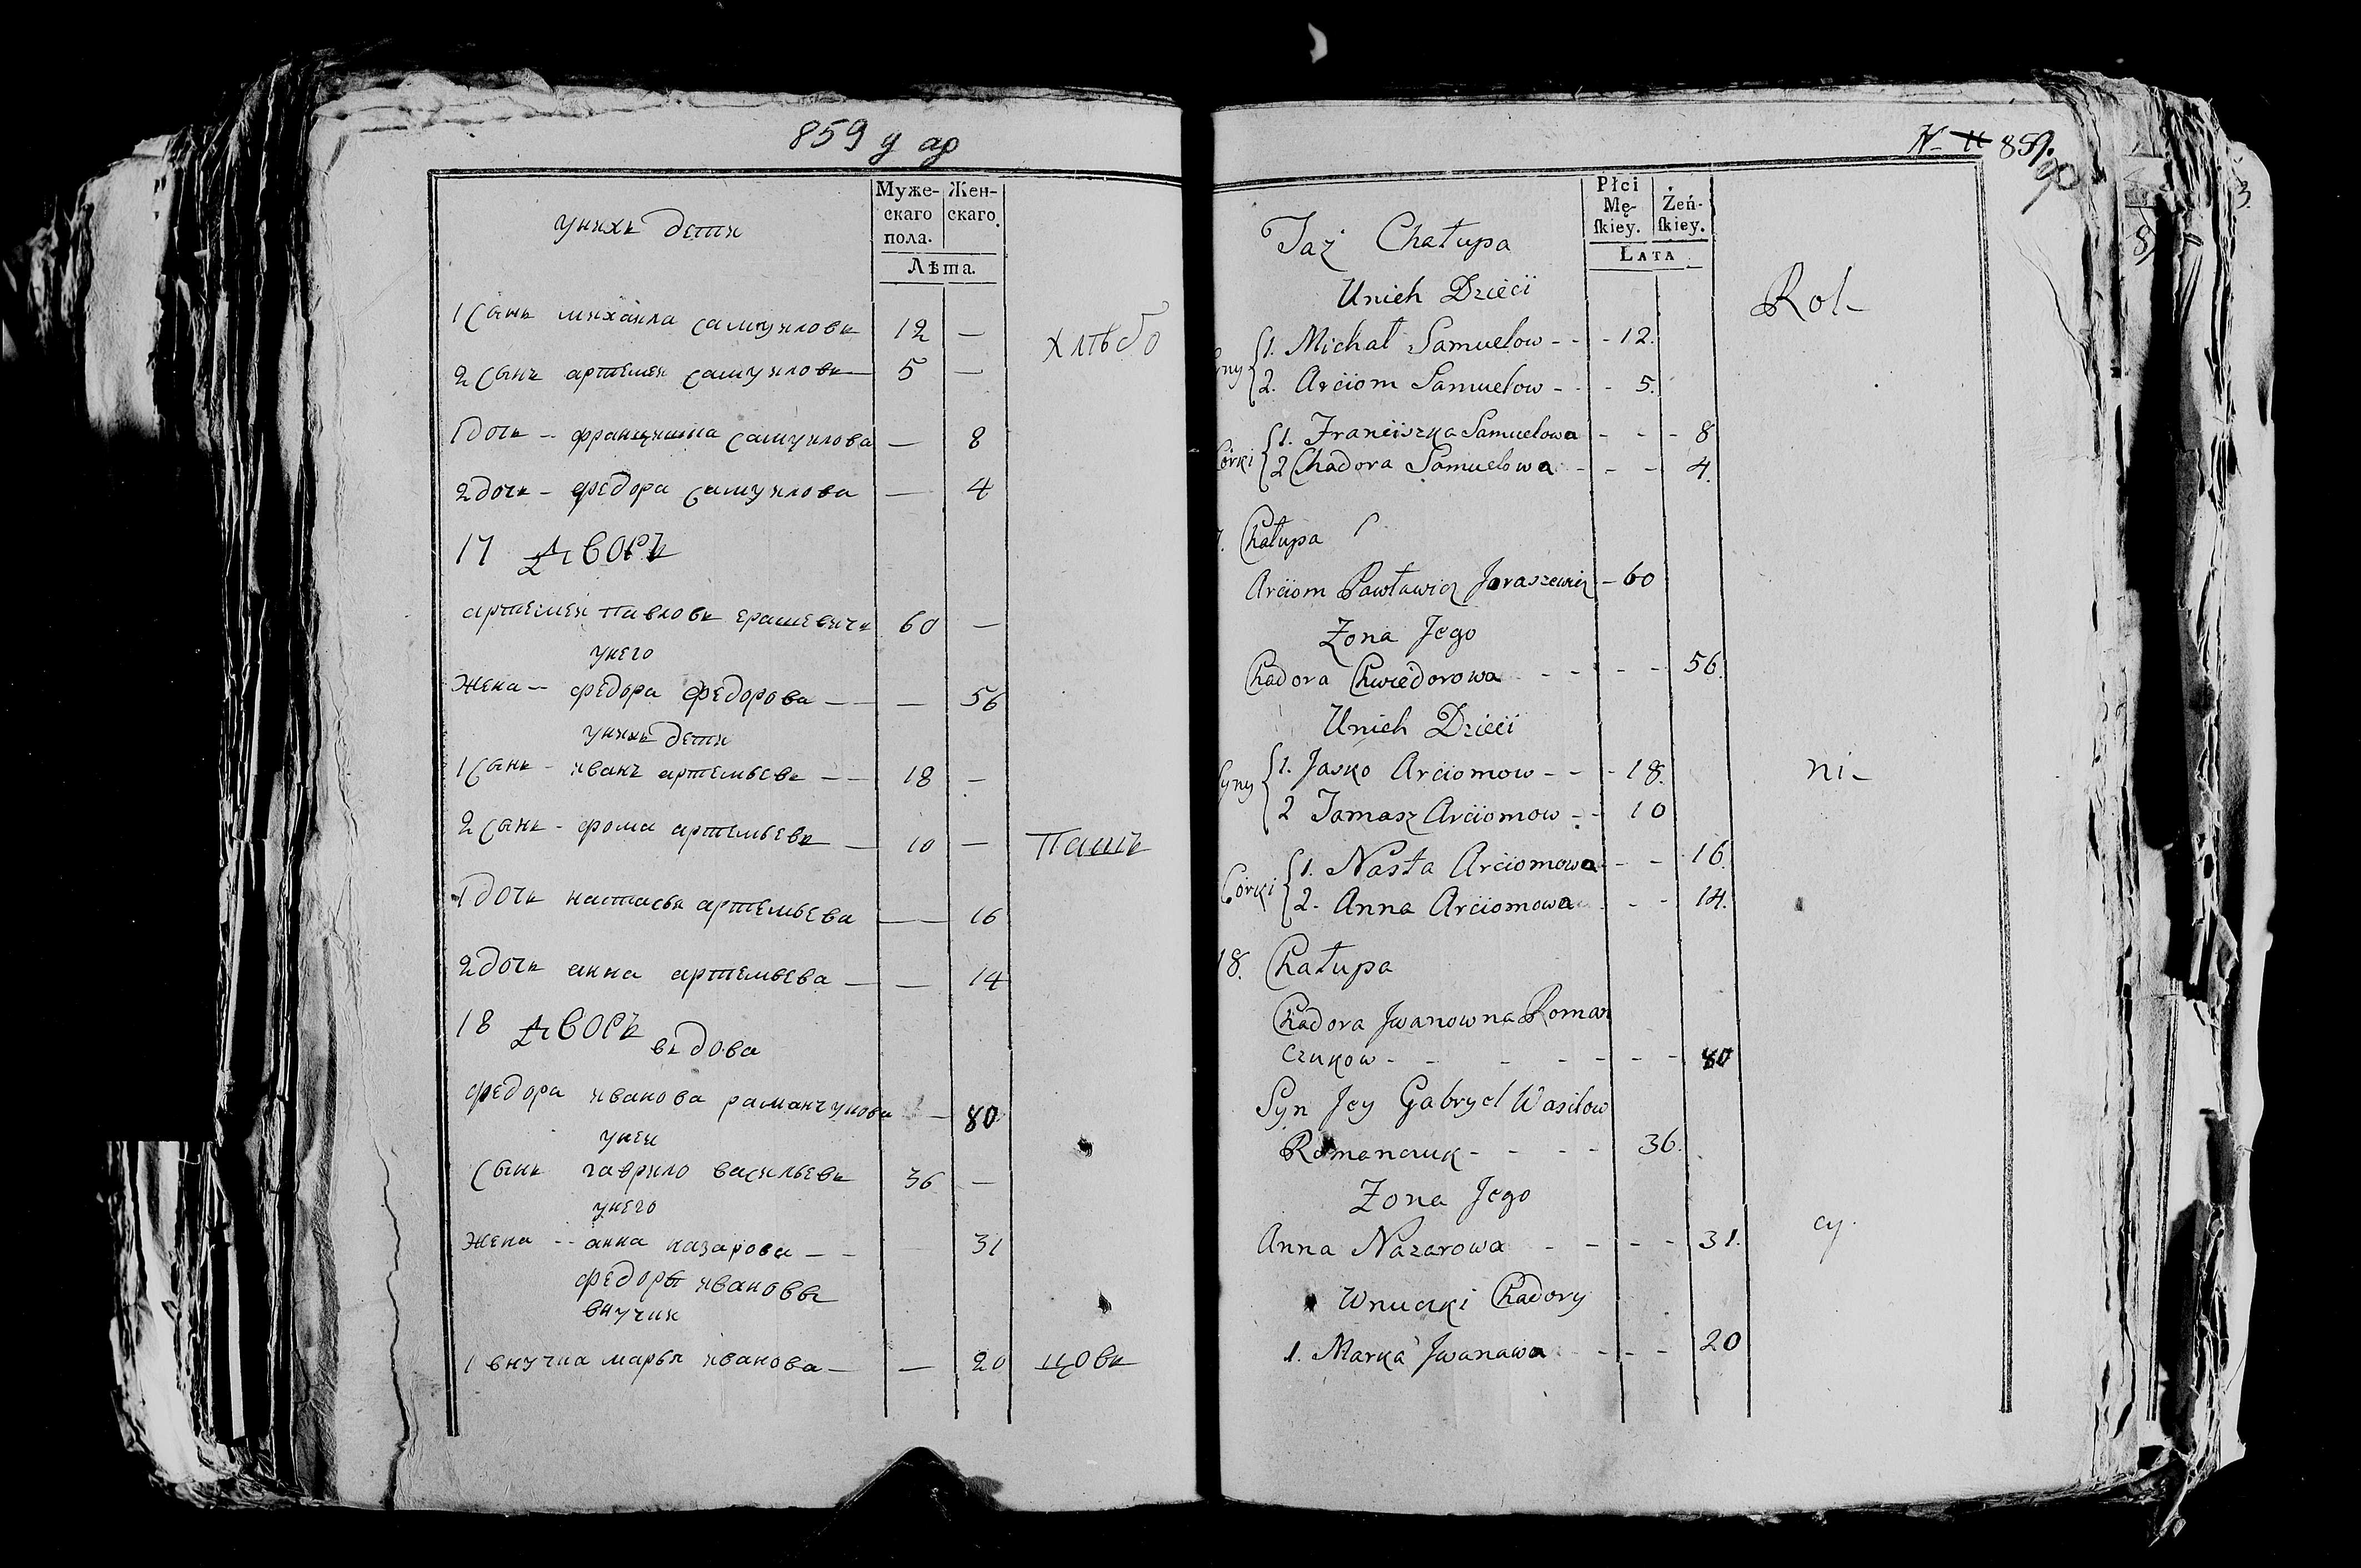 859
унихъ дети
Муже-
скаго
пола.
Жен-
скаго.
Лѣта.
1 сынъ михайла самуиловъ 12 —
хлѣбо
2 сынъ артемеи самуиловъ — 5 —
1 дочь - францишка самуилова — 8
2 дочь - федора самуилова — 4
17 дворъ
артемеи павловъ ерашевичъ 60 —
унего
жена - федора федорова — — 56
унихъ дети
1 сынъ - иванъ артемьевъ — 18 —
2 сынъ - фома артемьевъ — 10 —
пашъ
1 дочь настасья артемьева — 16
2 дочь анна артемьева — — 14
18 дворъ
въдова
федора иванова раманчукова — 80
унеи
сынъ гаврило васильевъ 36 —
унего
жена - - анна назарова — - 31
федоры ивановы
внучки
1 внучка марья иванова — — 20
цовъ
N- 11 859.
90
Płci
Mę-
ſkiey.
Żeń-
ſkiey.
LATA
Taż Chałupa
Unich Dzieci
Rol-
1. Michał Samuelow - - - 12.
2. Arciom Samuelow - - - 5.
Córki
1. Franciszka Samuelowa - - - 8
2 Chadora Samuelowa - - - 4.
7. Chałupa
Arciom Pawławicz Jaraszewicz - 60
Żona Jego
Chadora Chwiedorowa - - - - 56.
Unich Dzieci
Syny
1. Jasko Arciomow - - - 18.
ni-
2 Tamasz Arciomow - - 10
Córki
1. Nasta Arciomowa - - 16.
2. Anna Arciomowa - - 14.
18. Chałupa
Chadora Jwanowna Roman
czukow - - - - - - - 80
Syn Jey Gabryel Wasilow
Romanczuk - - - - 36.
Żona Jego
Anna Nazarowa - - - - 31.
cy.
Wnuczki Chadory
1. Marka Jwanawa - - - 20